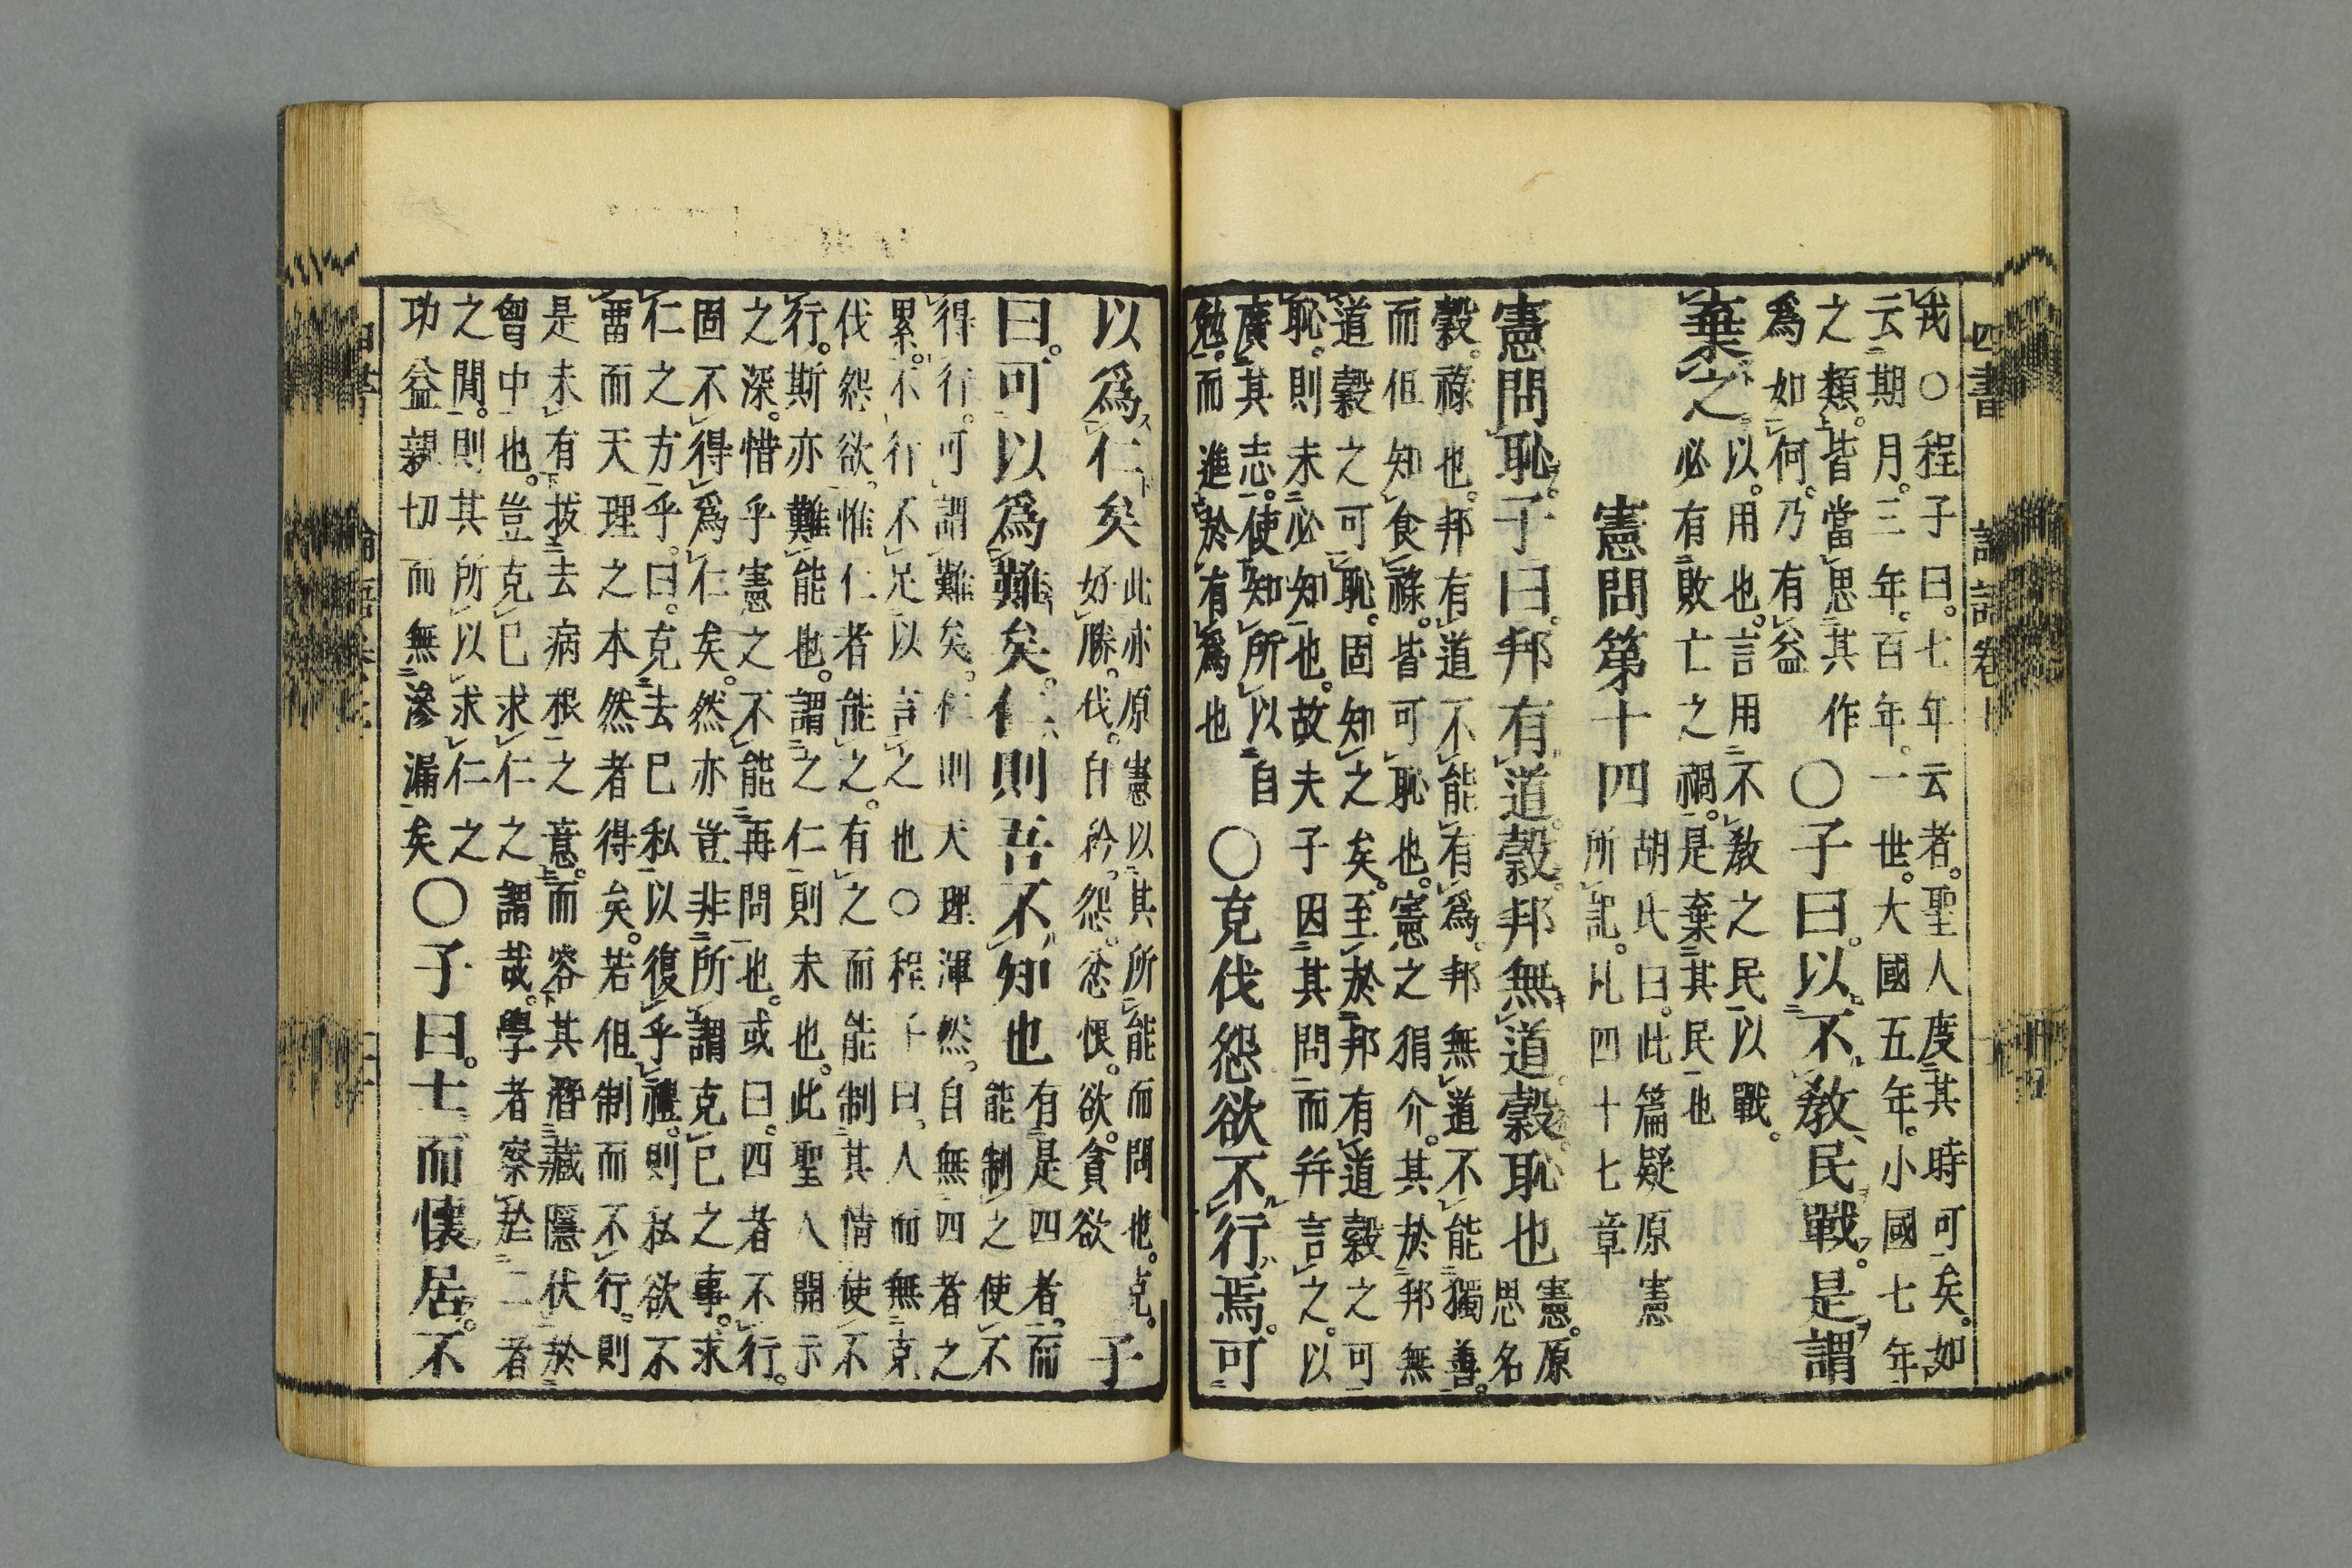 四書 論語卷
戎○程子曰。七年云者。聖人度其時可矣。如
云期月。三年。百年。一世。大國五年。小國七年
之類。皆當思其作
爲如何。乃有益
○子曰。以不敎民戰。是謂
棄之
以。用也。言用不敎之民以戰。
必有敗亡之禍。是棄其民也
憲問第十四
胡氏曰。此篇疑原憲
所記。凡四十七章
憲問恥。子曰。邦有道穀。邦無道穀。恥也
憲。原
思名
穀。祿也。邦有道不能有爲。邦無道不能獨善。
而但知食祿。皆可恥也。憲之狷介。其於邦無
道穀之可恥。固知之矣。至於邦有道穀之可
恥。則未必知也。故夫子因其問而幷言之。以
廣其志。使知所以自
勉。而進於有爲也
○克伐怨欲不行焉。可
以爲仁矣
此亦原憲以其所能而問也。克。
好勝。伐。自矜。怨。忿恨。欲。貪欲
子
曰。可以爲難矣。仁則吾不知也
有是四者。而
能制之使不
得行。可謂難矣。仁則天理渾然。自無四者之
累。不行不足以言之也○程子曰。人而無克
伐怨欲。惟仁者能之。有之而能制其情使不
行。斯亦難能也。謂之仁則未也。此聖人開示
之深。惜乎憲之不能再問也。或曰。四者不行。
固不得爲仁矣。然亦豈非所謂克己之事。求
仁之方乎。曰。克去己私以復乎禮。則私欲不
畱而天理之本然者得矣。若但制而不行。則
是未有拔去病根之意。而容其潛藏隱伏於
胷中也。豈克己求仁之謂哉。學者察於二者
之閒。則其所以求仁之
功益親切而無滲漏矣
○子曰。士而懷居。不